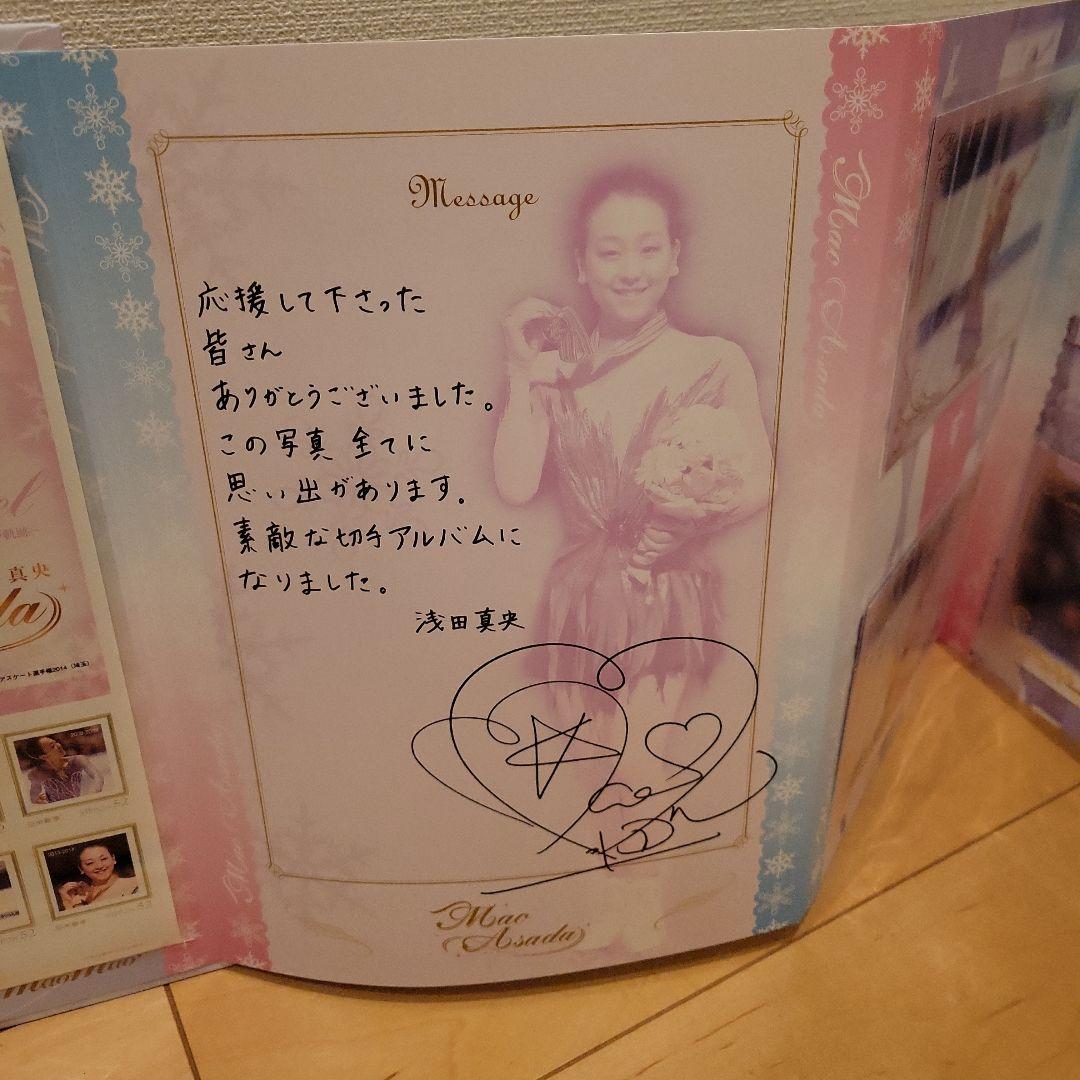 Message
応援して下さった
皆さん
ありがとうございました。
この写真 全てに
思い出があります。
素敵な切手アルバムに
なりました。
浅田真央
Mao
Asada
Mao Asada
真央
スケート選手権2014（埼玉）
MaoMao